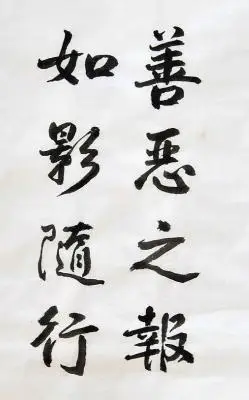 善惡之報
如影隨行